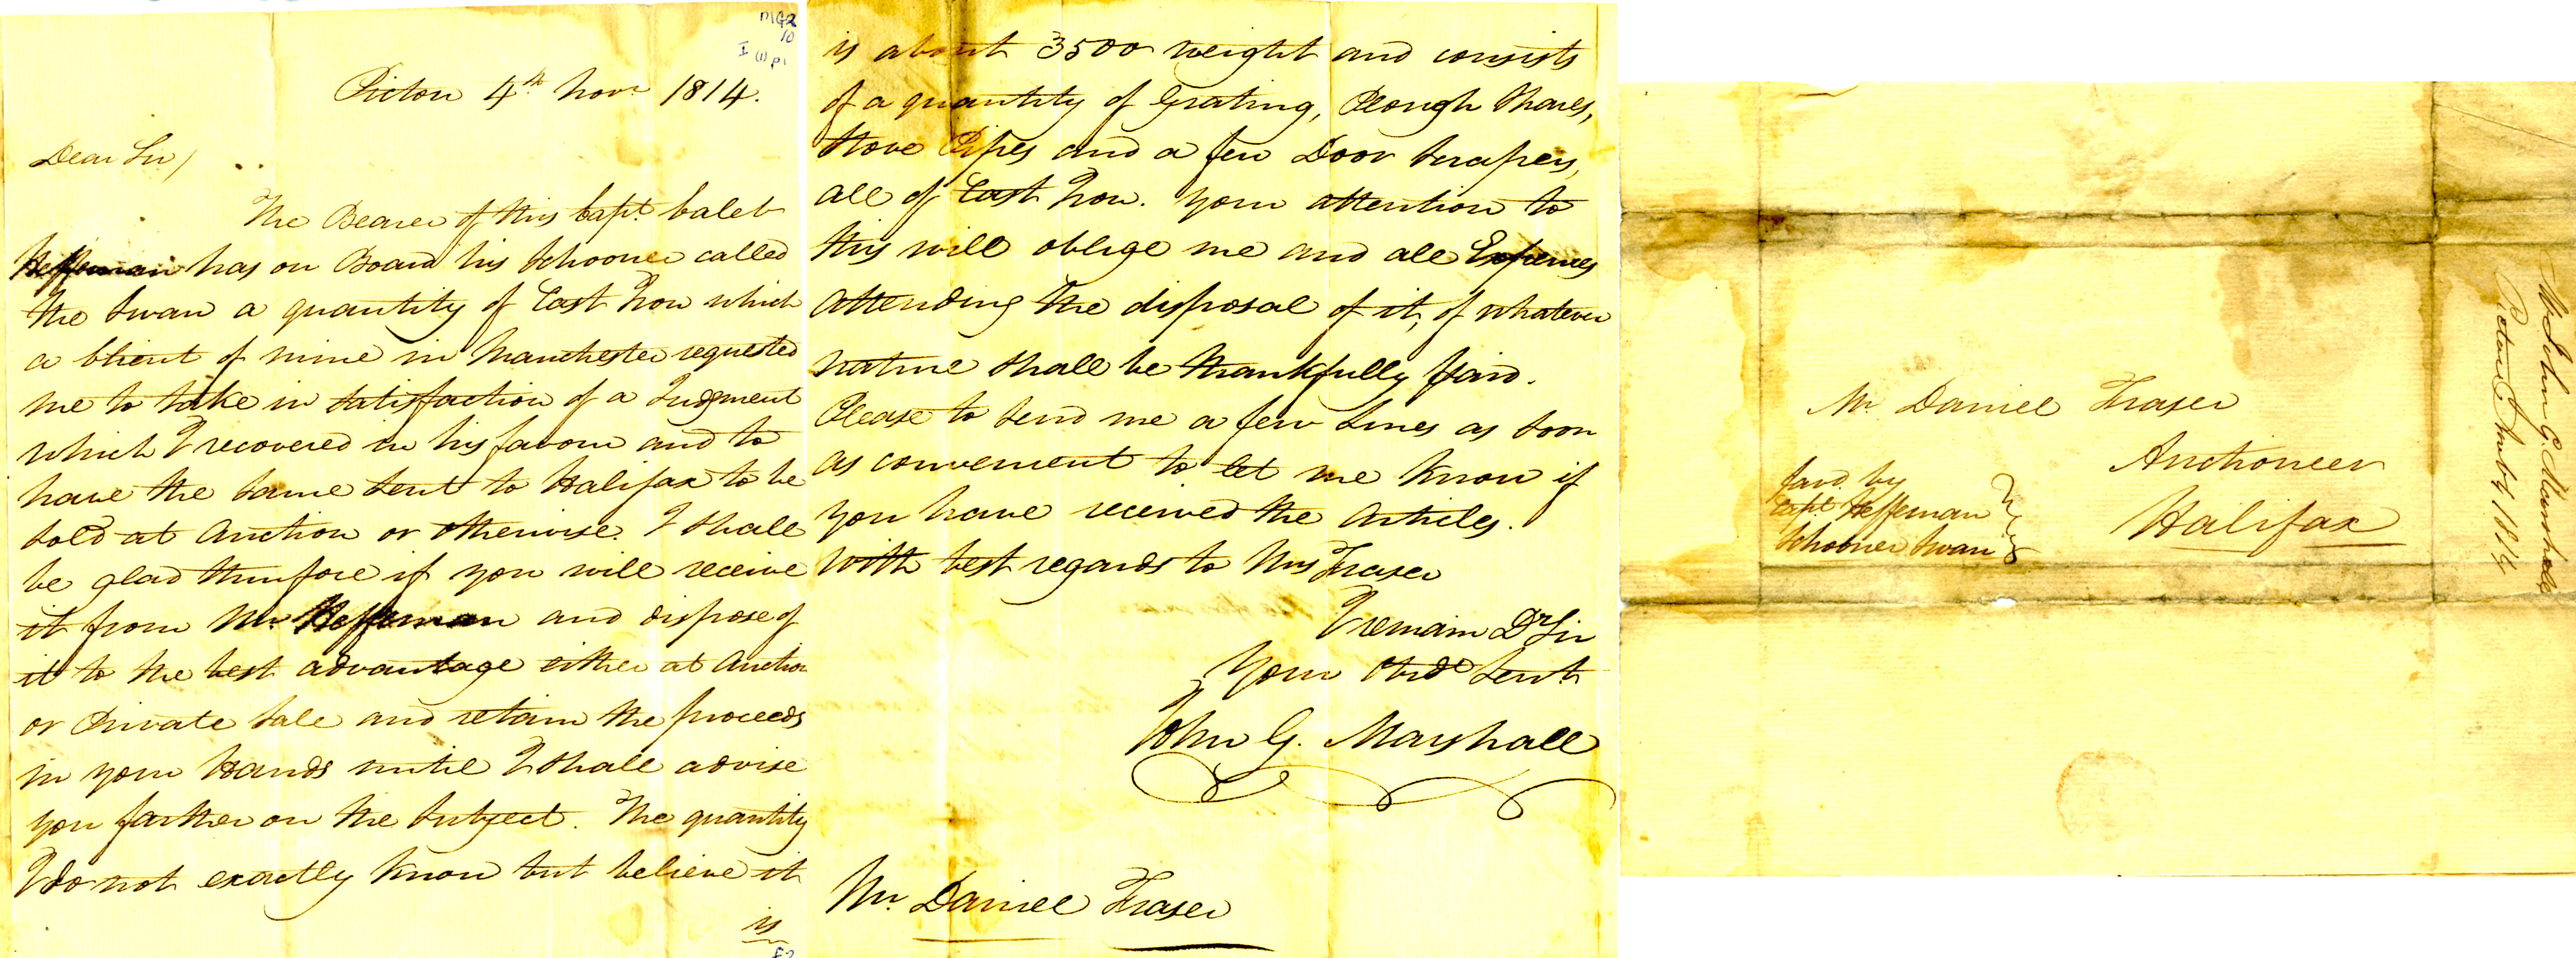 MG2
10
I (1) p1
Pictou 4th Novr 1814.
Dear Sir/
The Bearer of this Capt. Caleb
Heffernan has on Board his Schooner called
the Swan a quantity of Cast Iron which
a Client of mine in Manchester requested
me to take in satisfaction of a Judgment
which I recovered in his favour and to
have the same sent to Halifax to be
sold at Auction or otherwise. I shall
be glad therefore if you will receive
it from Mr. Heffernan and dispose of
it to the best advantage either at Auction
or Private Sale and retain the proceeds
in your Hands until I shall advise
you farther on the Subject. The quantity
I do not exactly know but believe it
is
is about 3500 weight and consists
of a quantity of Grating, Plough Shares,
Stove Pipes and a few Door Scrapers,
all of Cast Iron. Your attention to
this will oblige me and all Expences
attending the disposal of it, of whatever
nature shall be thankfully paid.
Please to send me a few Lines as soon
as convenient to let me know if
you have received the Articles.
With best regards to Mrs Fraser
I remain Dr Sir
Your Obdt Servt
John G. Marshall
Mr. Daniel Fraser
Mr Daniel Fraser
Auctioneer
Halifax
favd. by
Capt Heffernan
Schooner Swan
Mr John G. Marshall
Pictou 4 Novbr 1814